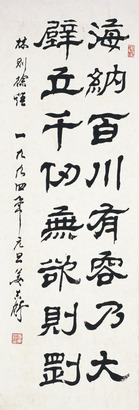 海納百川有容乃大
壁立千仞無欲則剛
林则徐语 一九九四年元旦 姜东舒